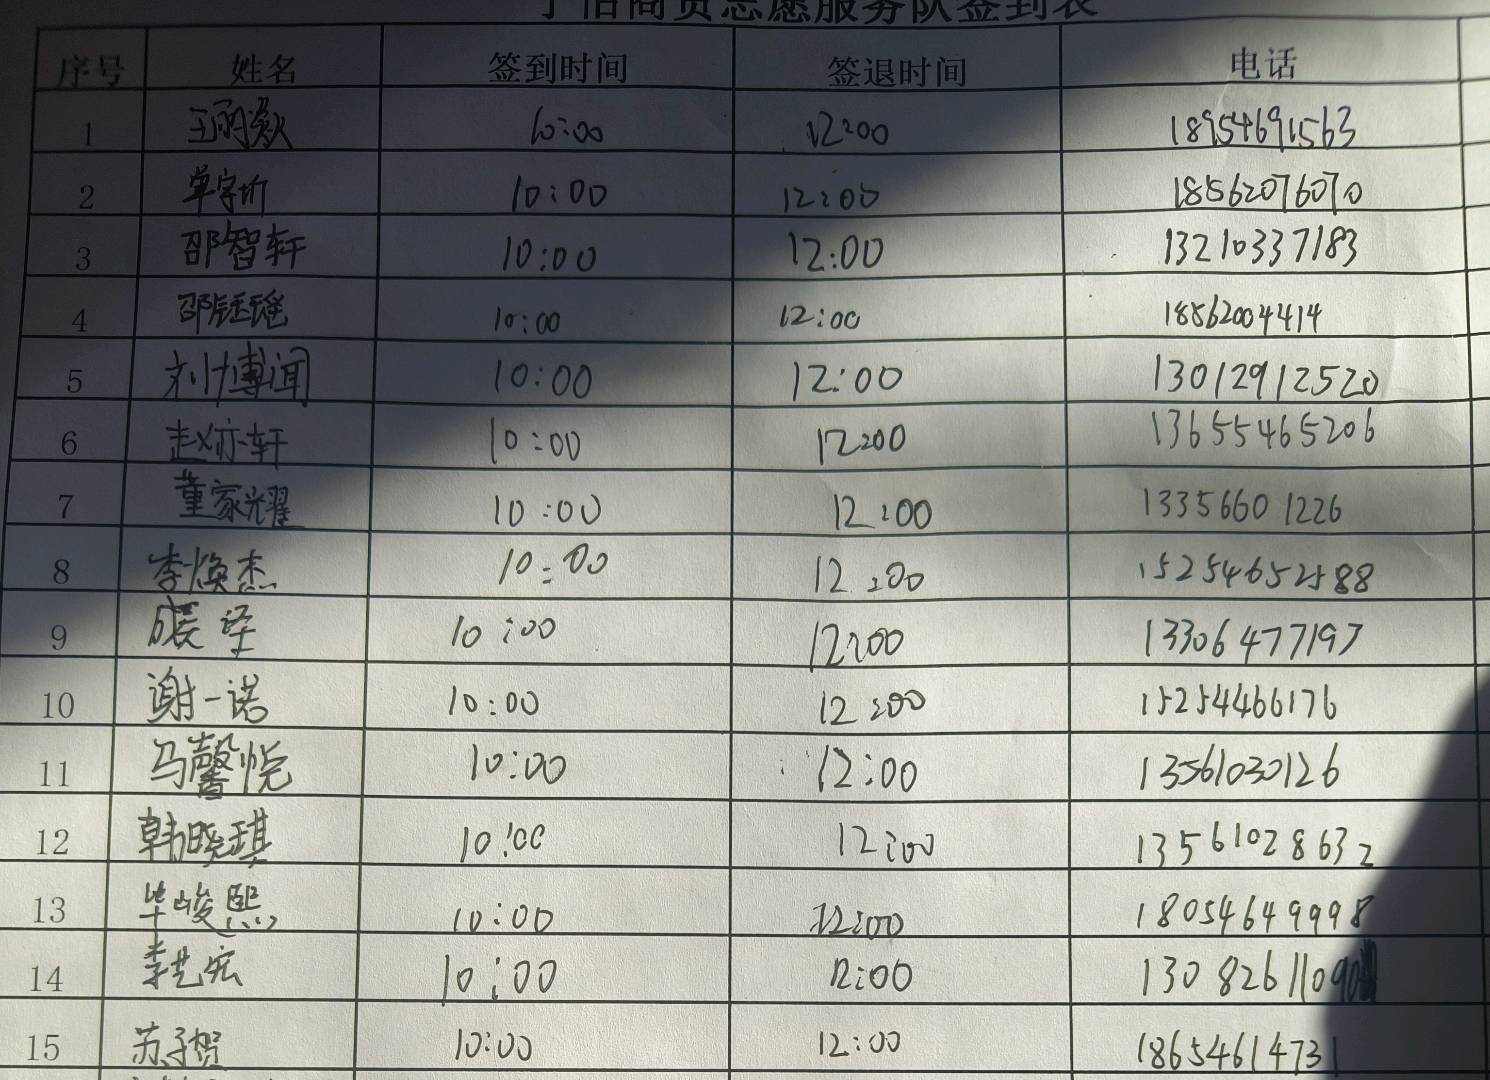 商贸志愿服务队签到表
序号 姓名 签到时间 签退时间 电话
1 10:00 12:00 18954691563
2 单字圻 10:00 12:00 18562076070
3 邵智轩 10:00 12:00 13210337183
4 邵钰瑶 10:00 12:00 18562004414
5 刘博闻 10:00 12:00 13012912520
6 赵亦轩 10:00 12:00 13655465206
7 董家耀 10:00 12:00 13356601226
8 李焕杰 10:00 12:00 15254652588
9 10:00 12:00 13306477197
10 谢一诺 10:00 12:00 15254466176
11 马馨悦 10:00 12:00 13561030126
12 韩晓琪 10:00 12:00 13561028632
13 毕峻熙 10:00 12:00 18054649998
14 李艺宏 10:00 12:00 1308261109
15 苏子贺 10:00 12:00 18654614731